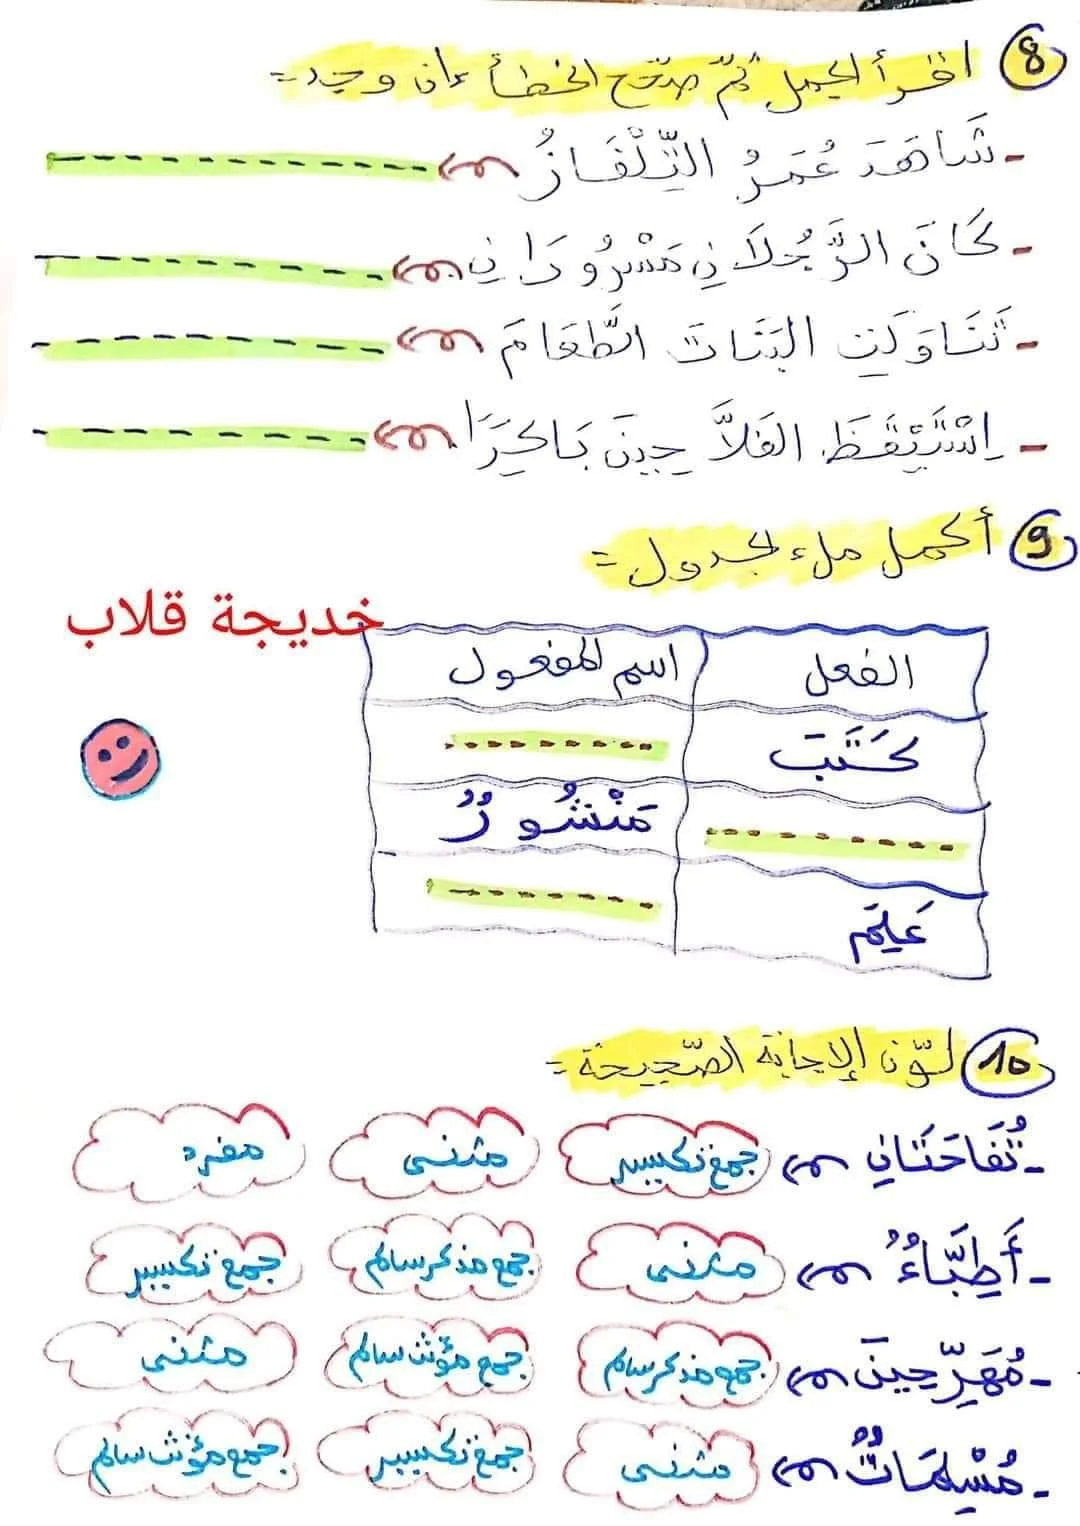 8 اقرأ الجمل ثمّ صحّح الخطأ إن وجد:
- شَاهَدَ عُمَرُ التِّلْفَازُ
- كَانَ الرَّجُلَانِ مَسْرُورَانِ
- تَنَاوَلَتِ البَنَاتَ الطَّعَامَ
- اِسْتَيْقَظَ الفَلاَّحِينَ بَاكِرًا
9 أكمل ملء الجدول:
خديجة قلاب
الفعل اسم المفعول
كَتَبَ
مَنْشُورٌ
عَلِمَ
10 لوّن الإجابة الصّحيحة:
- تُفَاحَتَانِ جمع تكسير مثنى مفرد
- أَطِبَّاءٌ مثنى جمع مذكر سالم جمع تكسير
- مُهَرِّجِينَ جمع مذكر سالم جمع مؤنث سالم مثنى
- مُسْلِمَاتٌ مثنى جمع تكسير جمع مؤنث سالم